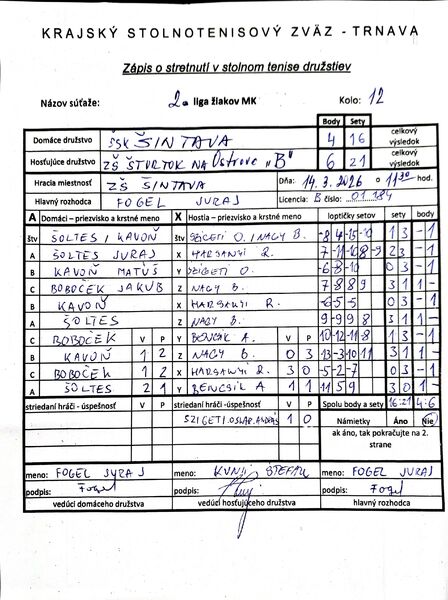 KRAJSKÝ STOLNOTENISOVÝ ZVÄZ - TRNAVA
Zápis o stretnutí v stolnom tenise družstiev
Názov súťaže: 2. liga žiakov MK Kolo: 12
Body Sety
Domáce družstvo ŠSK ŠINTAVA 4 16 celkový výsledok
Hosťujúce družstvo ZŠ ŠTVRTOK NA Ostrove "B" 6 21 celkový výsledok
Hracia miestnosť ZŠ ŠINTAVA Dňa: 14.3.2026 o 11:30 hod
Hlavný rozhodca FOGEL JURAJ Licencia: B číslo: 01.184
A Domáci – priezvisko a krstné meno X Hostia – priezvisko a krstné meno loptičky setov sety body
štv ŠOLTES / KAVOŇ štv SZIGETI O. / NAGY B. 13 -1
A ŠOLTES JURAJ X HARSANYI R. 23 -1
B KAVOŇ MATÚŠ Y SZIGETI O. -6-8-10 03 -1
C BOBOČEK JAKUB Z NAGY B. 7889 31 1-
B KAVOŇ X HARSANYI R. -6-5-5 03 -1
A ŠOLTES Z NAGY B. 31 1-
V P V P
C BOBOČEK Y BENCSIK A. 13 -1
B KAVOŇ 1 2 Z NAGY B. 0 3 31 1-
C BOBOČEK 1 2 X HARSANYI R. 3 0 -5-2-7 03 -1
A ŠOLTES 2 1 Y BENCSIK A. 1 1 11 5 9 30 1-
striedaní hráči - úspešnosť V P striedaní hráči -úspešnosť V P Spolu body a sety 16:21 4:6
SZIGETI 1 0 Námietky Áno Nie
ak áno, tak pokračujte na 2. strane
meno: FOGEL JURAJ meno: meno: FOGEL JURAJ
podpis: Fogel podpis: podpis: Fogel
vedúci domáceho družstva vedúci hosťujúceho družstva hlavný rozhodca